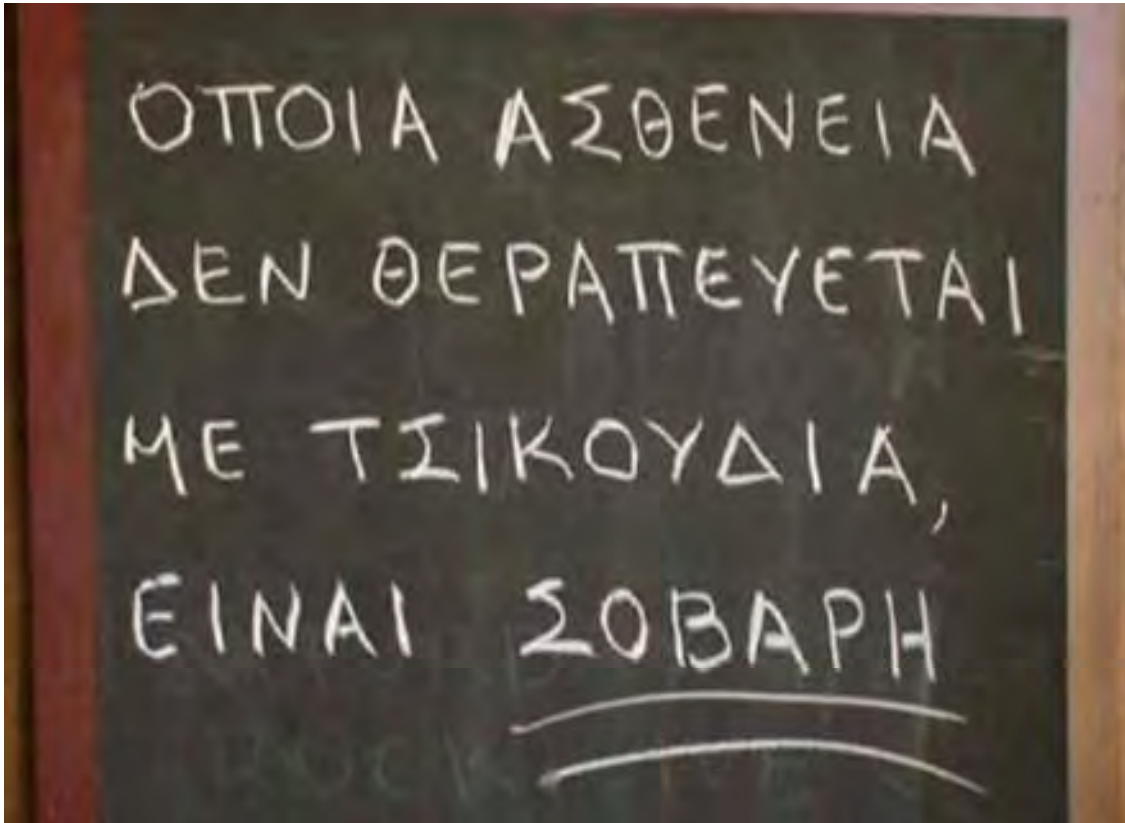 ΟΠΟΙΑ ΑΣΘΕΝΕΙΑ
ΔΕΝ ΘΕΡΑΠΕΥΕΤΑΙ
ΜΕ ΤΣΙΚΟΥΔΙΑ,
ΕΙΝΑΙ ΣΟΒΑΡΗ